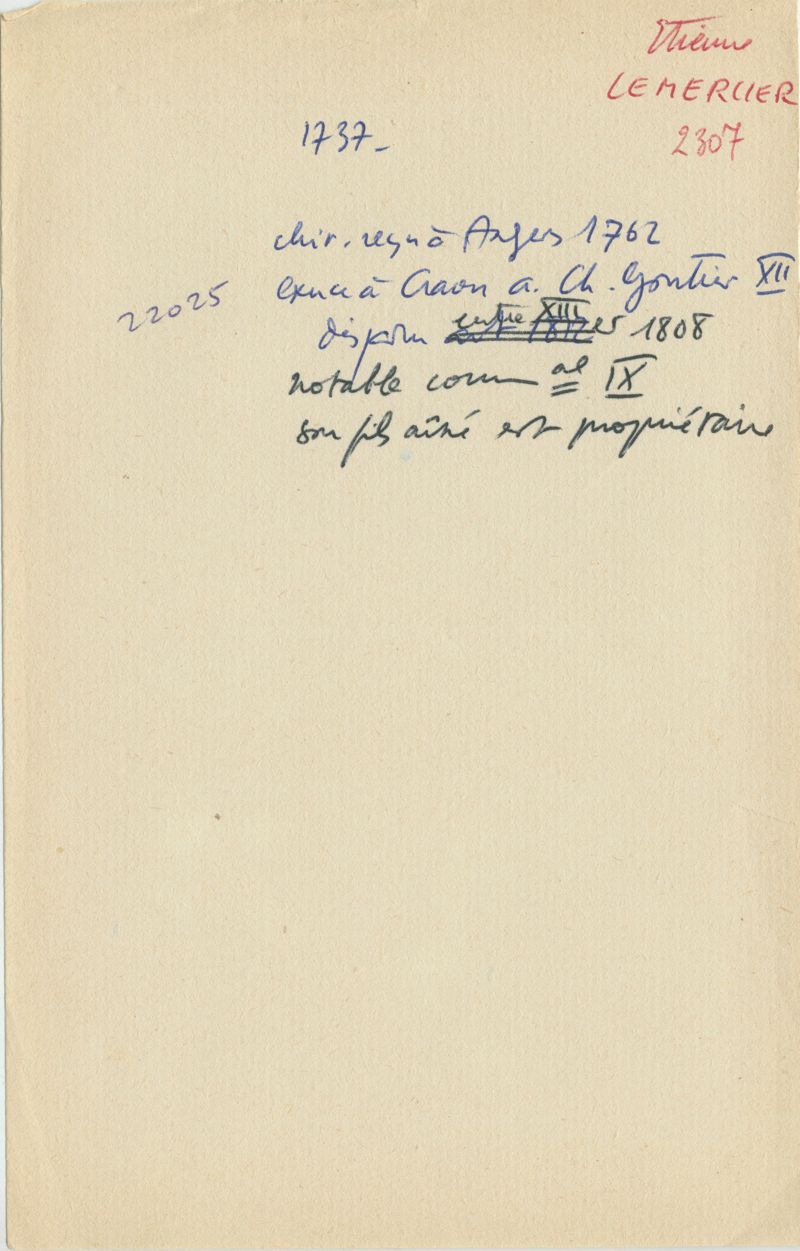 Etienne
LEMERCIER
2307
1737-
chir. reçu à Angers 1762
exerce à Craon a. Ch. Gontier XII
22025
disparu entre XIII et 1808
notable comm al IX
son fils aîné est propriétaire